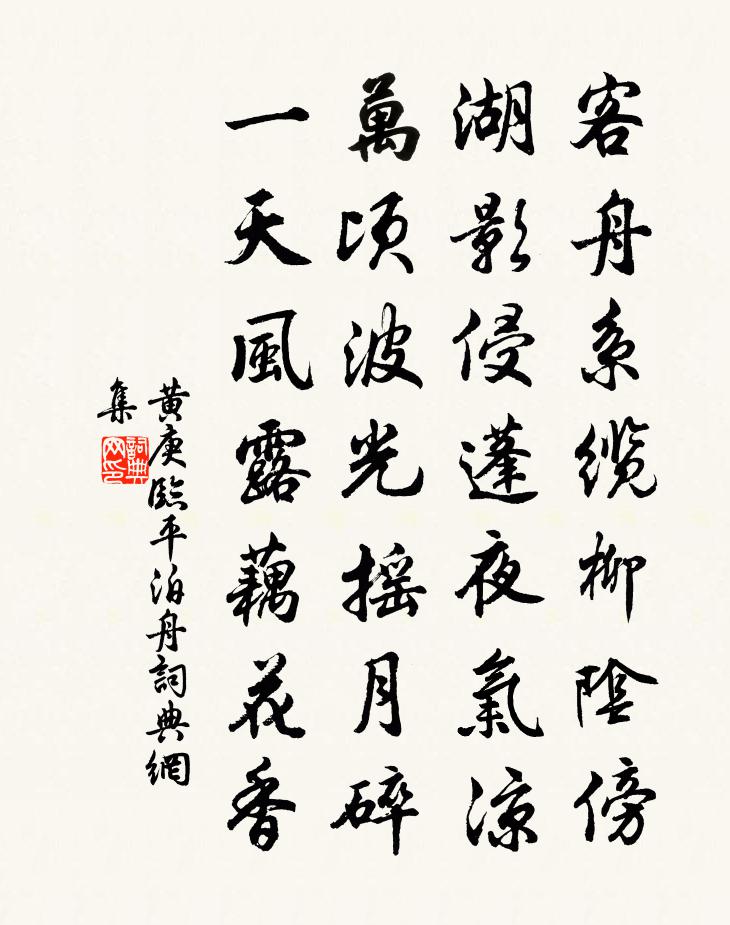 客舟系纜柳陰傍
湖影侵蓬夜氣涼
萬頃波光搖月碎
一天風露藕花香
黃庚臨平泊舟詞典網
集
詞典網印